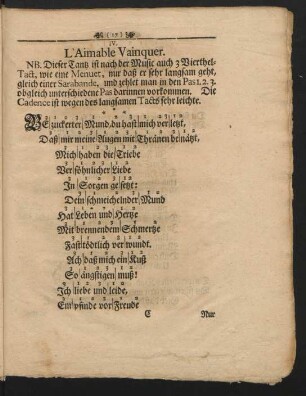 ( 12 )
IV.
L'Aimable Vainquer.
NB. Dieser Tantz ist nach der Music auch 3 Vierthel-
Tact, wie eine Menuet, nur daß er sehr langsam geht,
gleich einer Sarabande, und zehlet man in den Pas 1. 2. 3.
obgleich unterschiedene Pas darinnen vorkommen. Die
Cadence ist wegen des langsamen Tacts sehr leichte.
BEzuckerter Mund, du hast mich verletzt,
Daß mir meine Augen mit Thränen benätzt,
Mich haben die Triebe
Versöhnlicher Liebe
In Sorgen gesetzt:
Dein schmeichelnder Mund
Hat Leben und Hertze
Mit brennendem Schmertze
Fast tödtlich verwundt.
Ach daß mich ein Kuß
So ängstigen muß!
Ich liebe und leide,
Empfinde vor Freude
C Nur